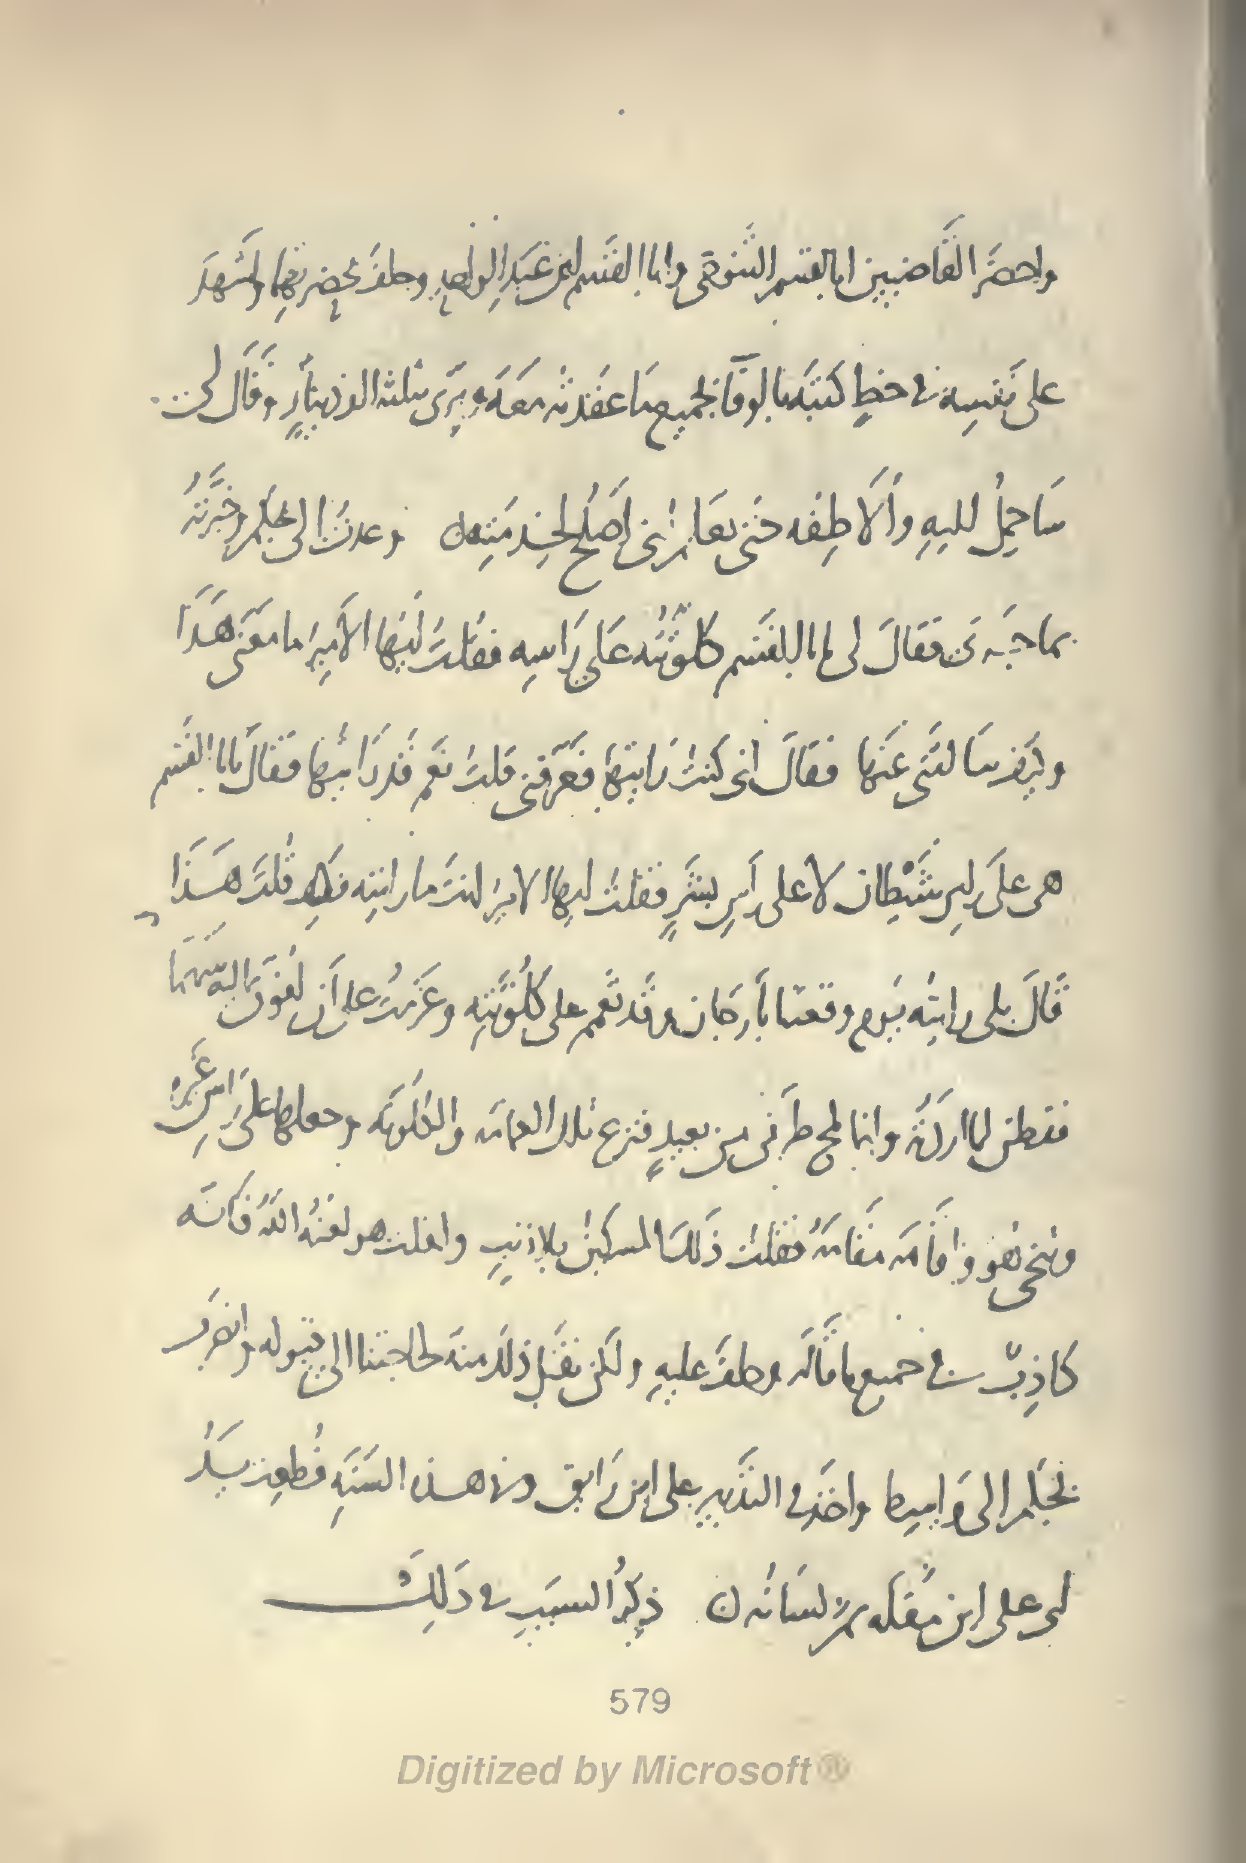 واحضر القاضيين ابا القسم التنوخى وابا القسم بن عبد الواحد وحلف بحضرتهما واشهد
على نفسه فى خط كتبه بالوفا بجميع ما عقدته معه وبرى بثلثه الف دينار وقال لى
ساحمل اليه والاطفه حتى يعلم اننى اصلح لخدمته وعدت الى بجكم وخبرته
بما جرى فقال لى يابا القسم كلوته على راسه فقلت ايها الامير ما معنى هذا
وليس سالتنى عنها فقال ان كنت رايتها فعرفنى قلت نعم قد رايتها فقال يابا القسم
هى على راس شيطان لا على راس بشر فقلت ايها الامير انت ما رايته فكيف قلت هذا
قال بلى رايته يوم وقعتنا بارجان وقد تعمم على كلوته وعزمت على ان افوق اليه سهما
ففطن لما اردته وانما لمح طرفى من بعيد فنزع تلك العمامه والكلوته وجعلها على راس غيره
وتنحى هو واقامه مقامه فقلت ذلك المسكين بلا ذنب وافلت هو لعنه الله فكانه
كاذب فى جميع ما قاله وحلف عليه ولكن نقبل ذلك منه لحاجتنا الى قبوله وانصرف
بجكم الى واسط واخذ فى التدبير على ابن رايق وفى هذه السنه قطعت يد
ابى على ابن مقله ثم لسانه ذكر السبب فى ذلك
579
Digitized by Microsoft®